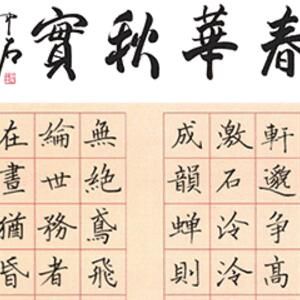 春華秋實
中石
軒邈争高
激石泠泠
成韻蝉則
無絶鳶飛
綸世務者
在晝猶昏